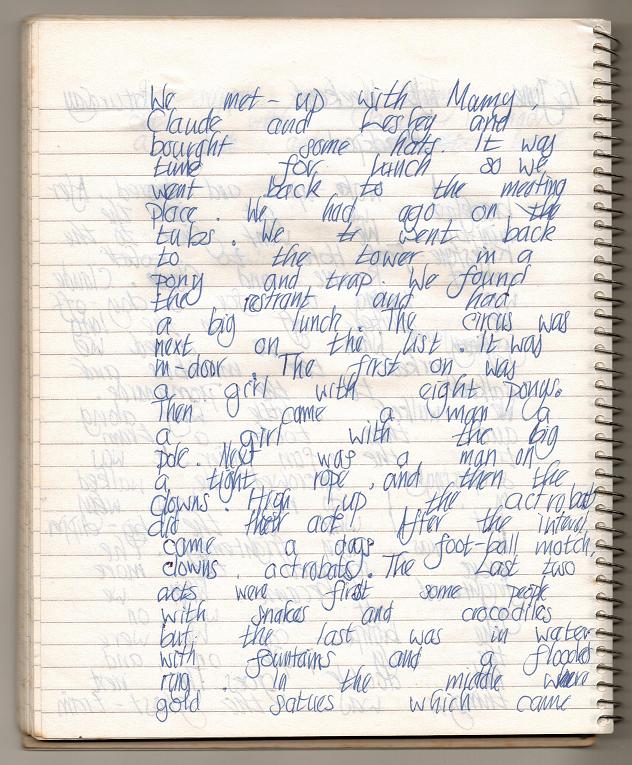 We met-up with Mamy,
Claude and Lesley and
bourght some hats. It was
time for lunch so we,
went back to the meeting
place. We had ago on the
tubs. We tr went back
to the tower in a
pony and trap. We found
the restrant and had
a big lunch. The circus was
next on the list. It was
in-door. The first on was
a girl with eight ponys.
Then came a man a
a girl with the big
pole. Next was a man on
a tight rope, and then the
clowns. High up the actrobats
did their act! After the interval
came a dogs foot-ball match,
clowns, actrobats. The Last two
acts were first some people
with snakes and crocodiles
but the last was in water
with fountains and a flooded
ring. In the middle where
gold satues which came